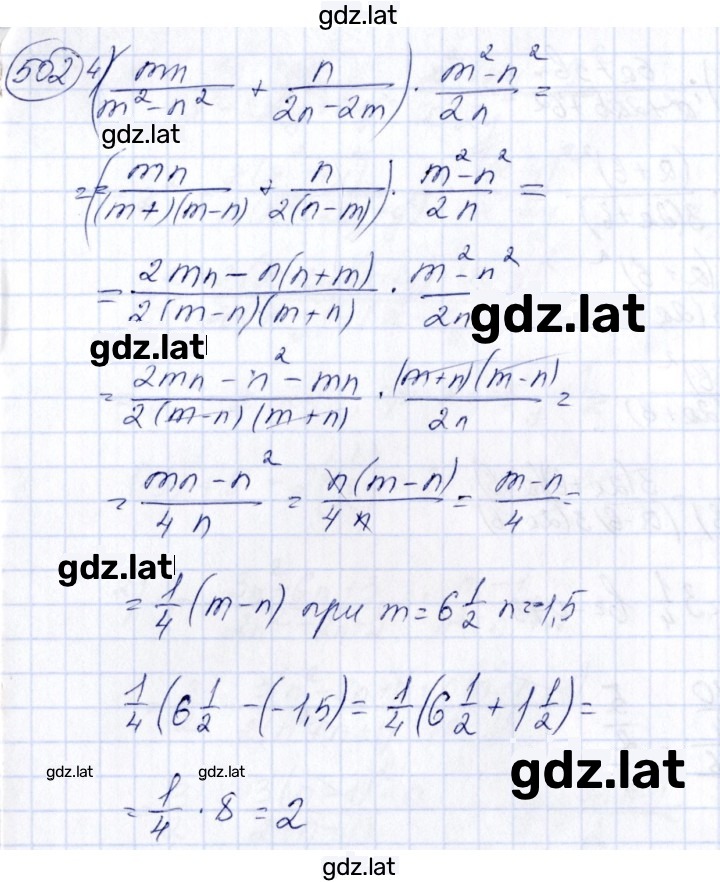 gdz.lat
502 4) (mn/(m²-n²) + n/(2n-2m)) · (m²-n²)/(2n) =
gdz.lat
= (mn/((m+)(m-n)) + n/(2(n-m))) · (m²-n²)/(2n) =
= (2mn - n(n+m))/(2(m-n)(m+n)) · (m²-n²)/(2n)
gdz.lat
gdz.lat
= (2mn - n² - mn)/(2(m-n)(m+n)) · ((m+n)(m-n))/(2n) =
= (mn-n²)/(4n) = (n(m-n))/(4n) = (m-n)/4 =
gdz.lat
= 1/4 (m-n) при m=6 1/2 n=-1,5
1/4 (6 1/2 - (-1,5) = 1/4 (6 1/2 + 1 1/2) =
gdz.lat
gdz.lat gdz.lat
= 1/4 · 8 = 2
gdz.lat